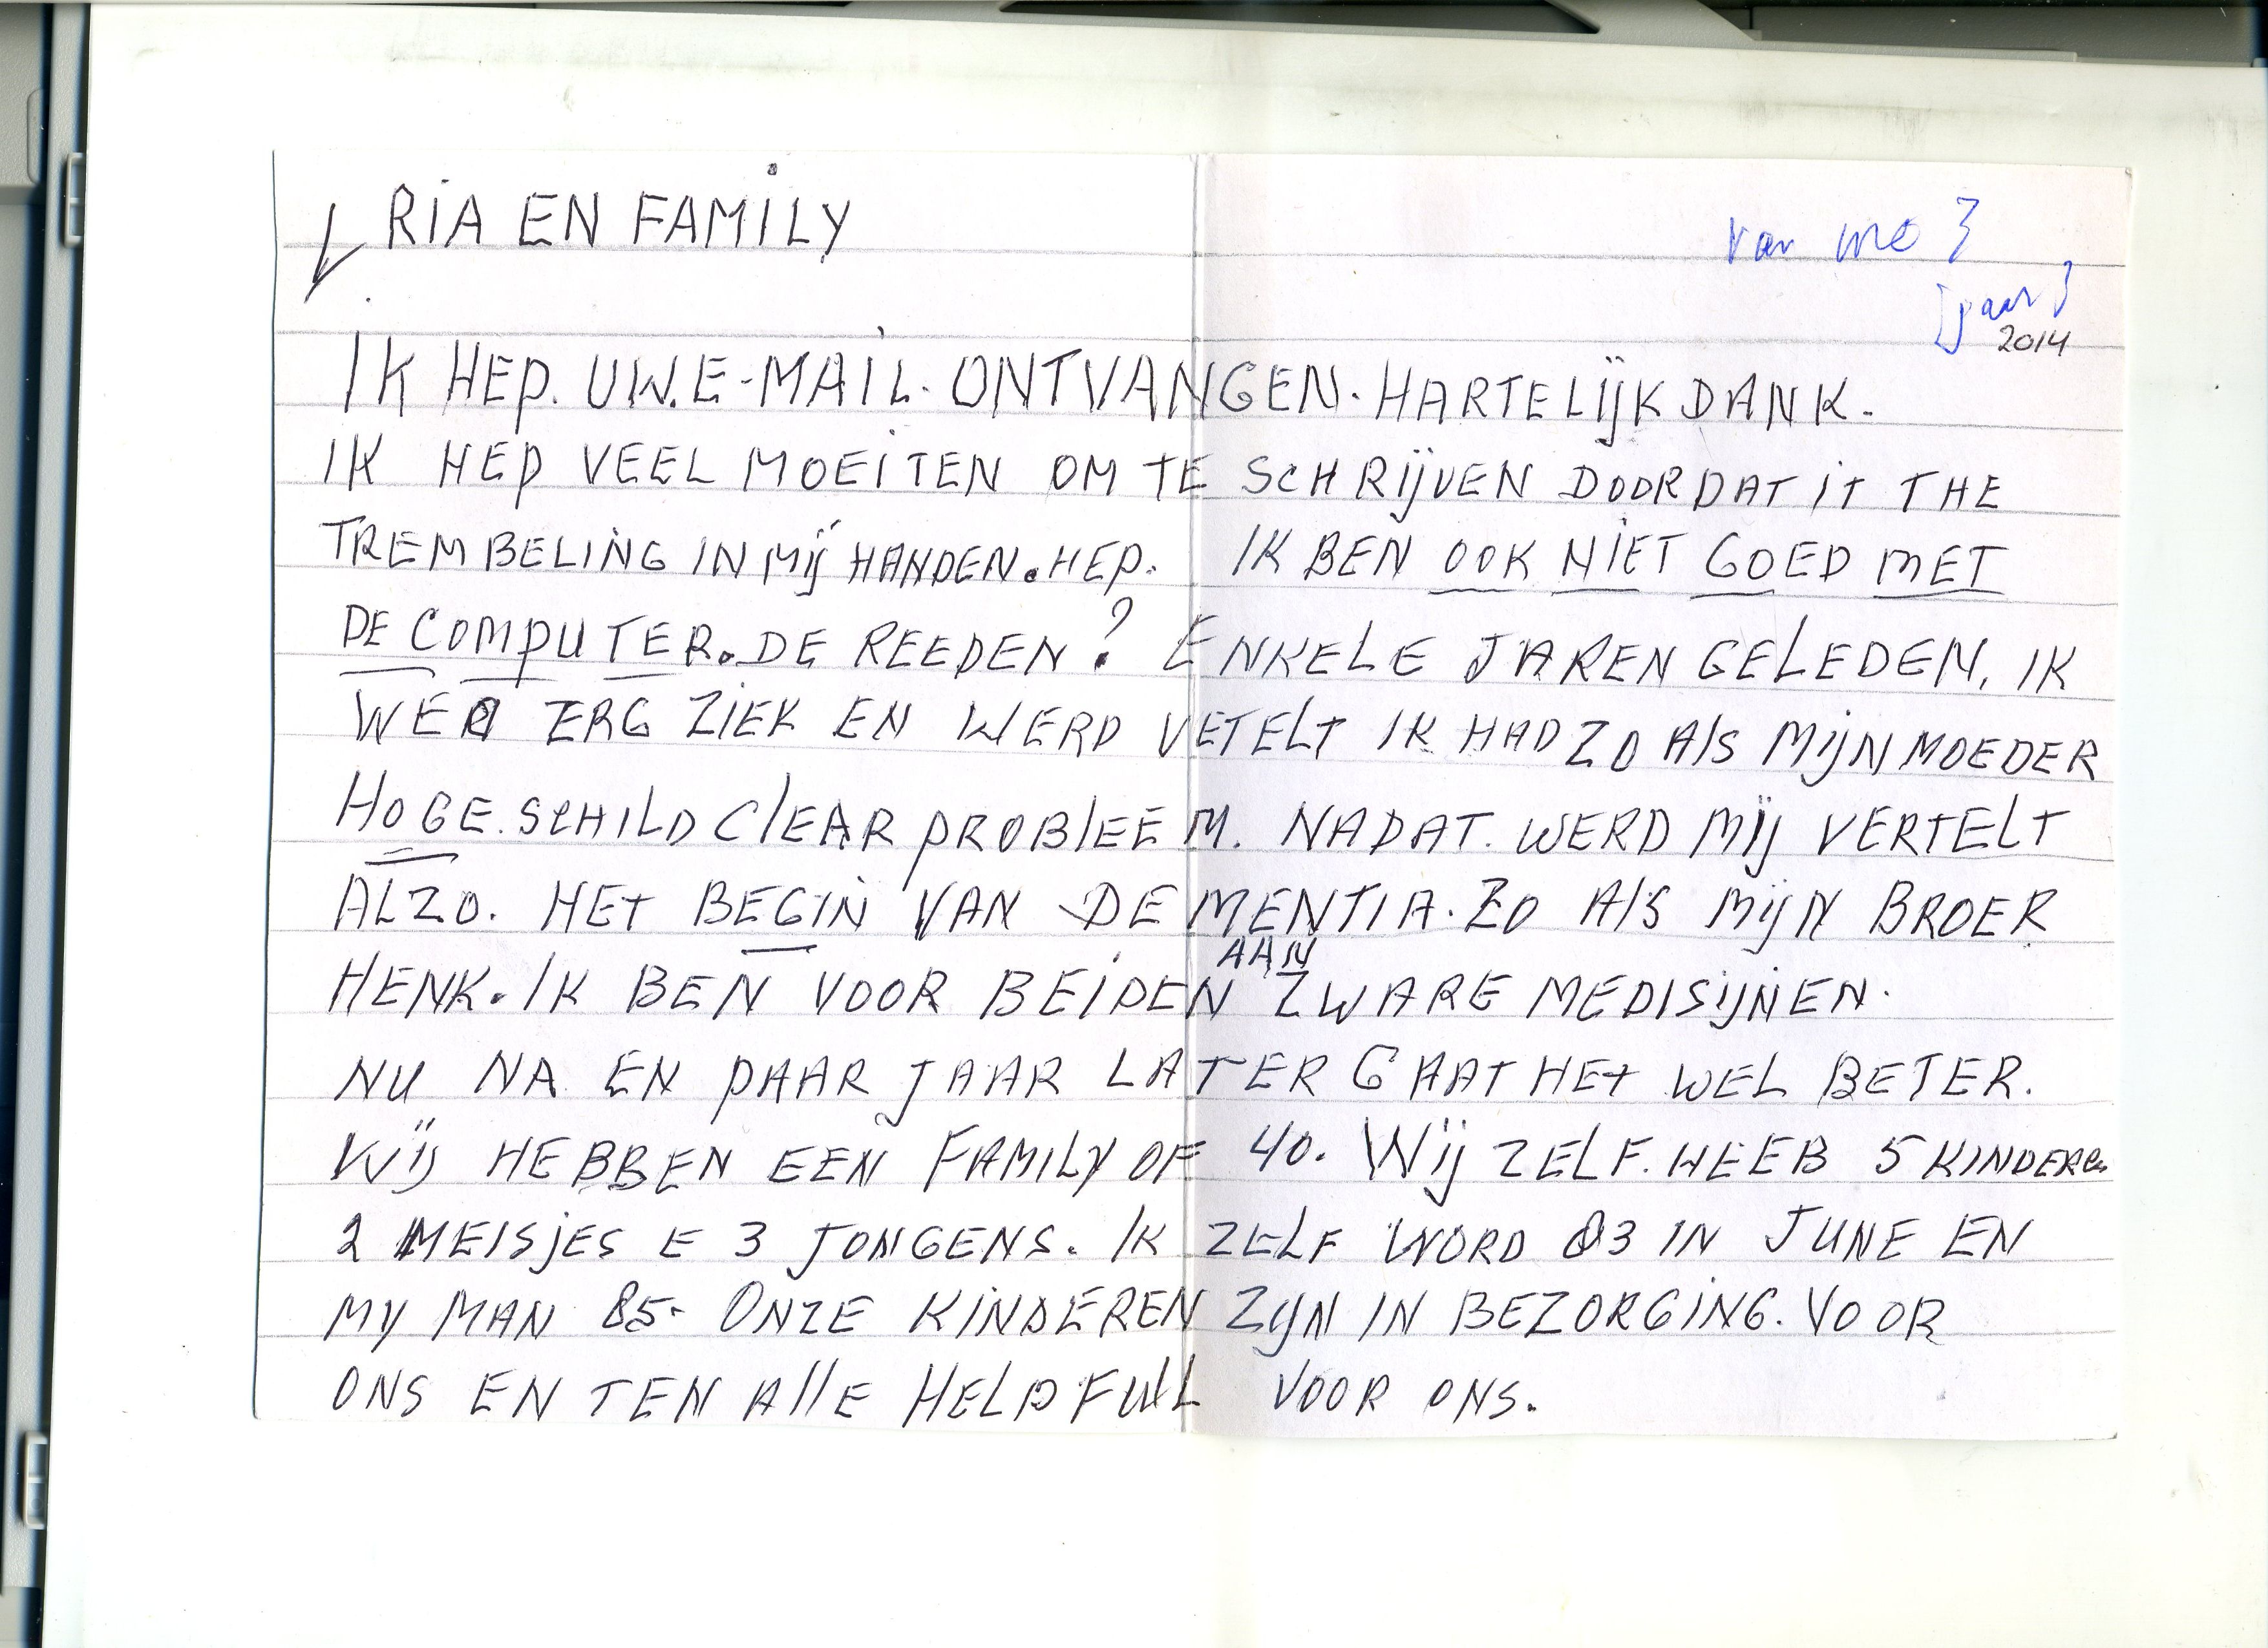 RIA EN FAMILY
van mo}
[jaar]
2014
IK HEP. UW. E-MAIL. ONTVANGEN. HARTELIJK DANK.
IK HEP VEEL MOEITEN OM TE SCHRIJVEN DOORDAT IT THE
TREMBELING IN MIJ HANDEN. HEP. IK BEN OOK NIET GOED MET
DE COMPUTER. DE REEDEN? ENKELE JAREN GELEDEN, IK
WERD ZERG ZIEK EN WERD VETELT IK HAD ZO AlS MIJN MOEDER
HOGE. SCHILD ClEAR PROBlEEM. NADAT. WERD MIJ VERTELT
ALZO. HET BEGIN VAN DEMENTIA. ZO AlS MIJN BROER
HENK. IK BEN VOOR BEIDEN AAN ZWARE MEDISIJNEN.
NU NA EN PAAR JAAR LATER GAAT HET WEL BETER.
WIJ HEBBEN EEN FAMILY OF 40. WIJ ZELF. HEEB 5 KINDEREN
2 MEISJES E 3 JONGENS. IK ZELF WORD 83 IN JUNE EN
MY MAN 85- ONZE KINDEREN ZIJN IN BEZORGING. VOOR
ONS EN TEN AllE HELPFULL VOOR ONS.